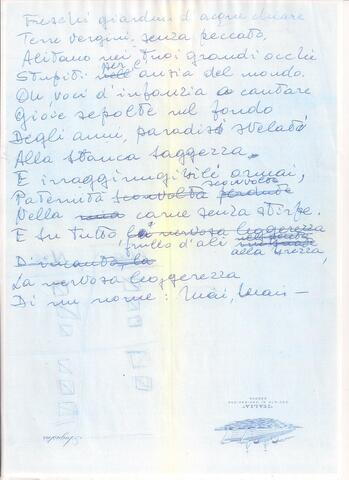 Freschi giardini d'acque chiare
Terre vergini senza peccato.
Alitano nei tuoi grandi occhi
Stupiti per l'ansia del mondo.
Oh, voci d'infanzia a cantare
Gioie sepolte nel fondo
Degli anni, paradisi svelati
Alla stanca saggezza.
E irraggiungibili ormai,
sconvolta
Paternità sconvolta perduta
Nella carne senza stirpe.
E su tutto la nervosa leggerezza
frullo d'ali alla brezza,
D'incanto, la
La nervosa leggerezza
Di un nome: Mai, Mai —
"ITALIA"